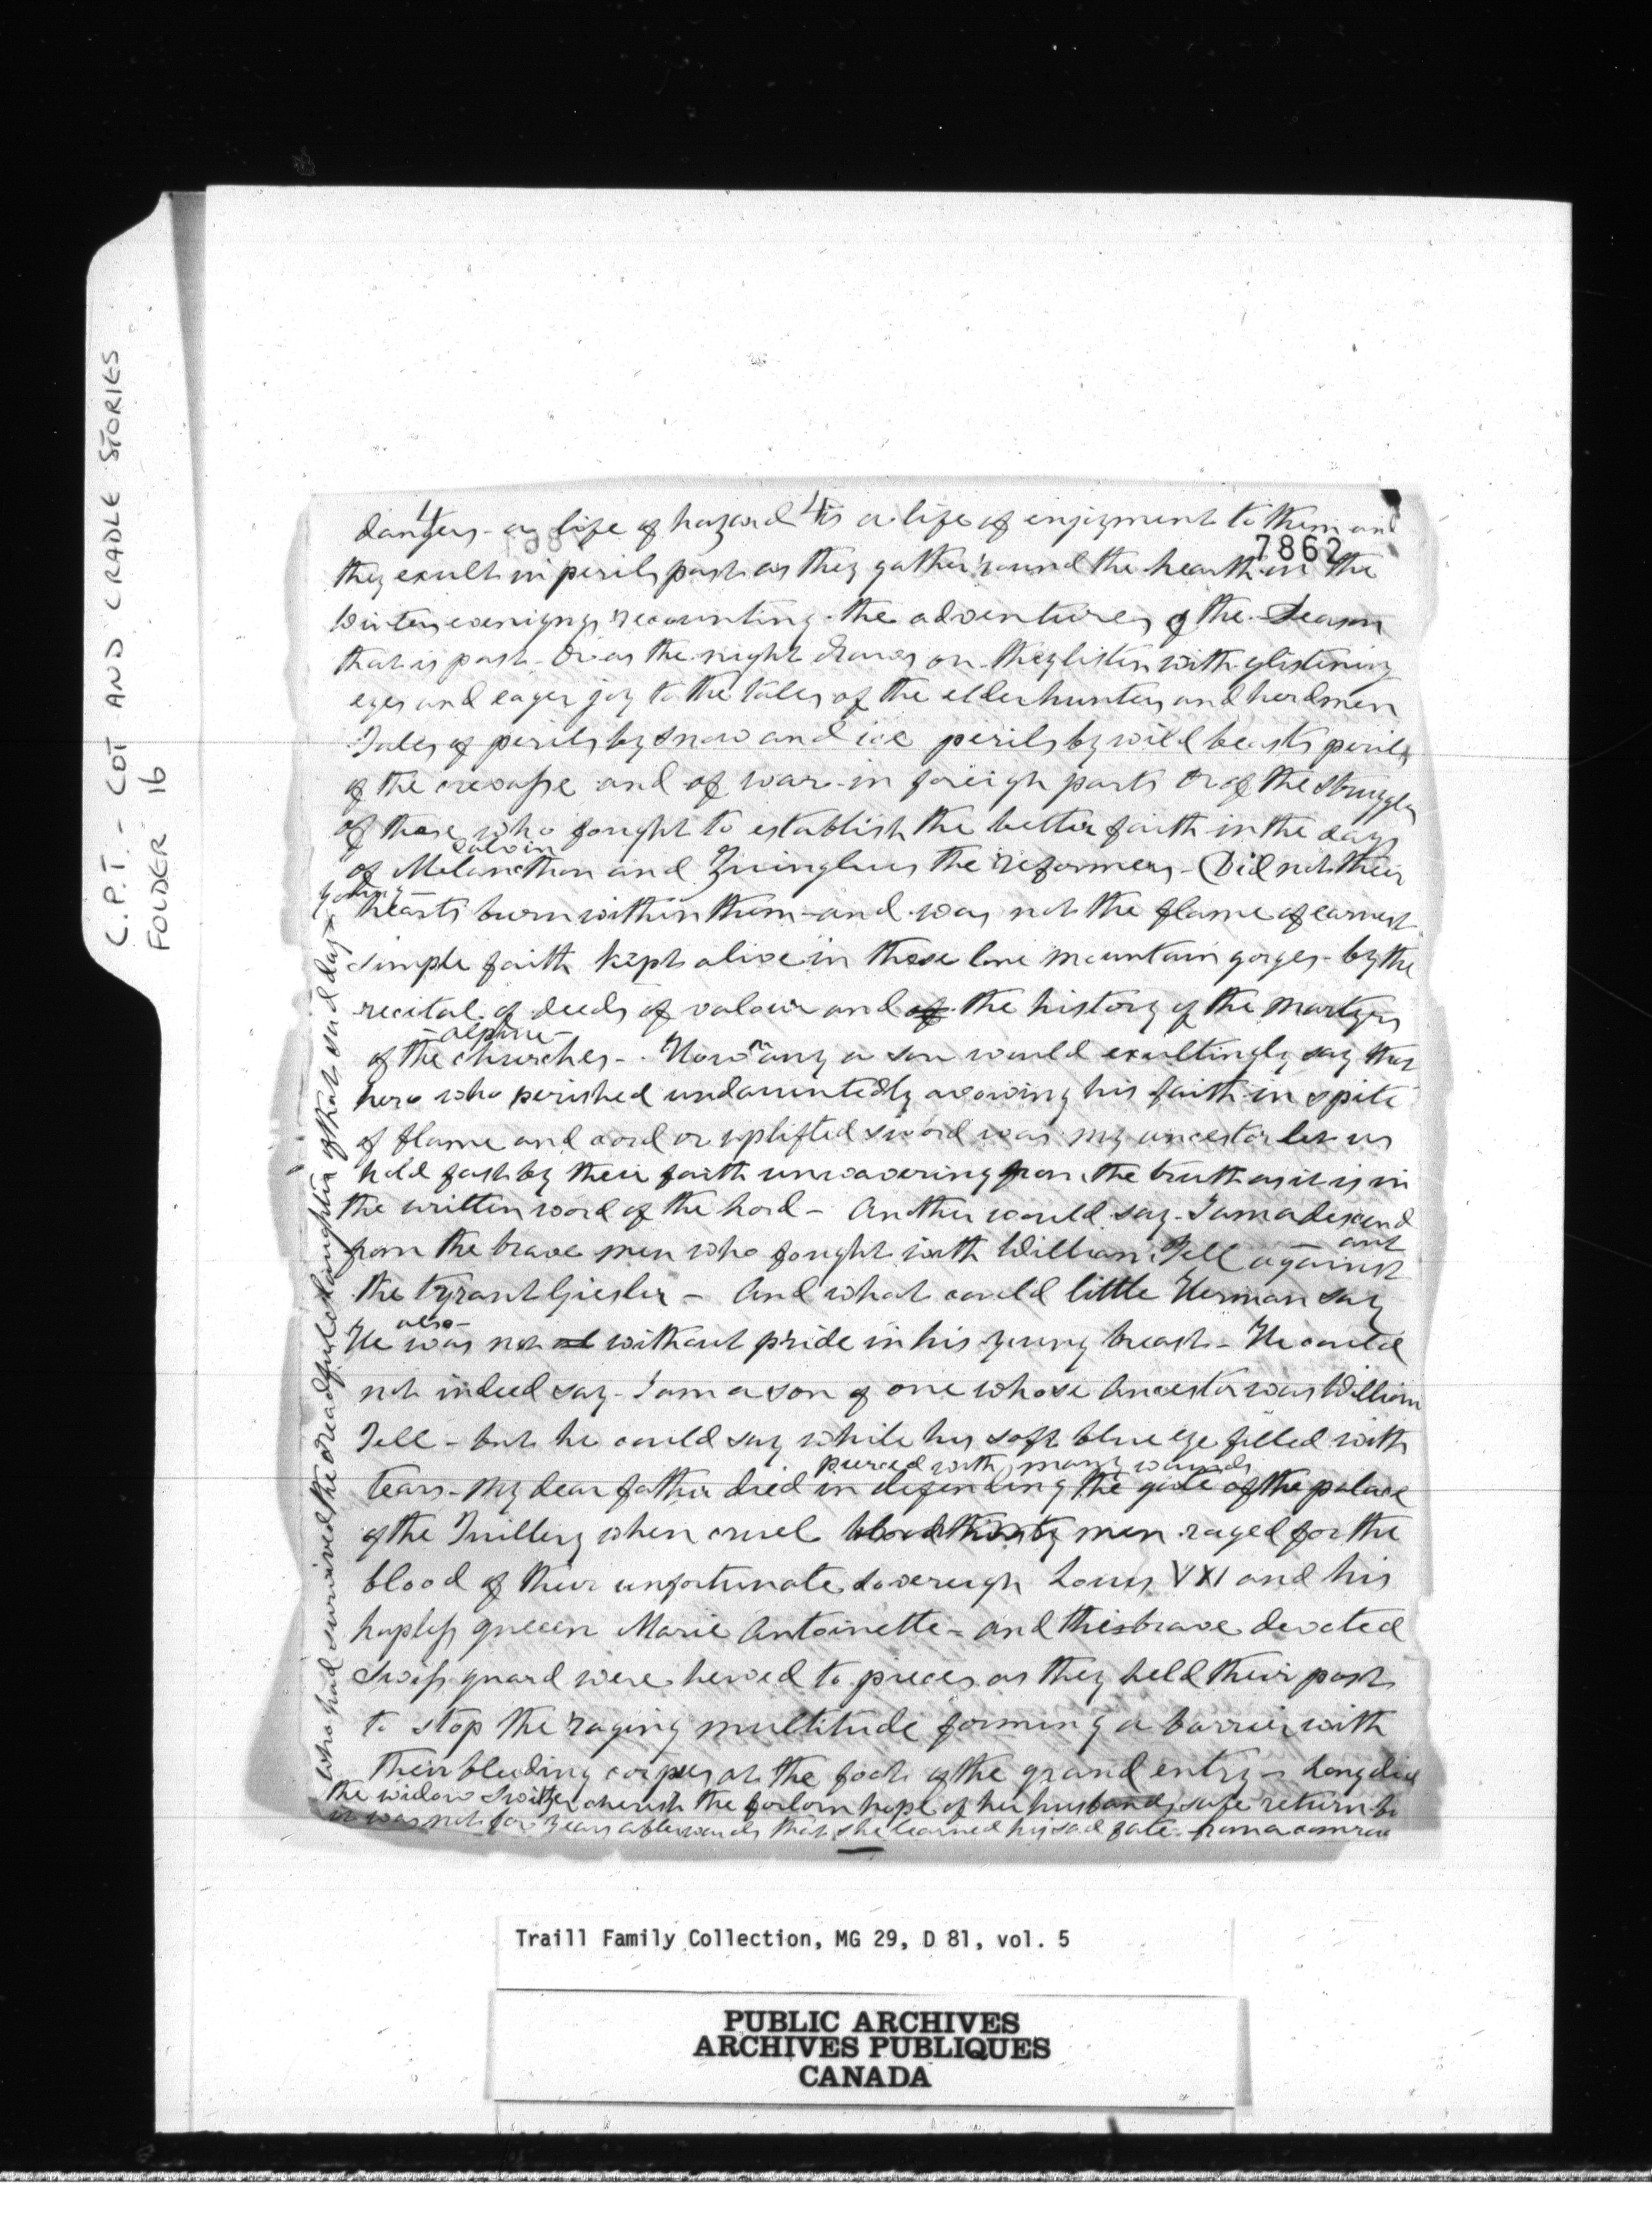 C.P.T. - COT AND CRADLE STORIES
FOLDER 16
4 4
7862
dangers - a life of hazard is a life of enjoyment to them and
they exult in perils past as they gather round the hearth in the
Winters evenigngs recounting the adventures of the Season
that is past - Or as the night draws on they listen with glistening
eyes and eager joy to the tales of the elder hunters and herdmen
Tales of perils by snow and ice perils by wild beasts perils
of the crevasse and of war in foreign parts Or of the struggles
of those who fought to establish the better faith in the days
Calvin
of Melancthon and Zwinglius the reformers - Did not their
young
hearts burn within them - and was not the flame of earnest
simple faith kept alive in those lone mountain gorges - by the
recital of deeds of valour and of the history of the Martyrs
- alpine -
of the churches - How many a son would exultingly say that
hero who perished undauntedly avowing his faith in spite
of flame and cord or uplifted sword was my ancestor let us
hold fast by their faith unwavering from the truth as it is in
the written word of the Lord - Another would say - I am a descend
ant
from the brave men who fought with William Tell against
the tyrant Giesler - And what could little Herman say
also -
He was not without pride in his young breast - He could
not indeed say - I am a son of one whose Ancestor was William
Tell - but he could say while his soft blue eye filled with
pierced with many wounds
tears - My dear father died in defending the gate of the palace
of the Tuillery when cruel bloodthirsty men raged for the
blood of their unfortunate sovereign Louis VXI and his
hapless queeen Marie Antoinette - and this brave devoted
Swiss guard were hewed to pieces as they held their post
to stop the raging multitude forming a barrier with
their bleeding corpses at the foot of the grand entry - Long did
the widow Switzer cherish the forlorn hope of her husbands safe return but
it was not for years afterwards that she learned his sad fate from a comrade
who had survived the dreadful slaughter of that sad day
Traill Family Collection, MG 29, D 81, vol. 5
PUBLIC ARCHIVES
ARCHIVES PUBLIQUES
CANADA